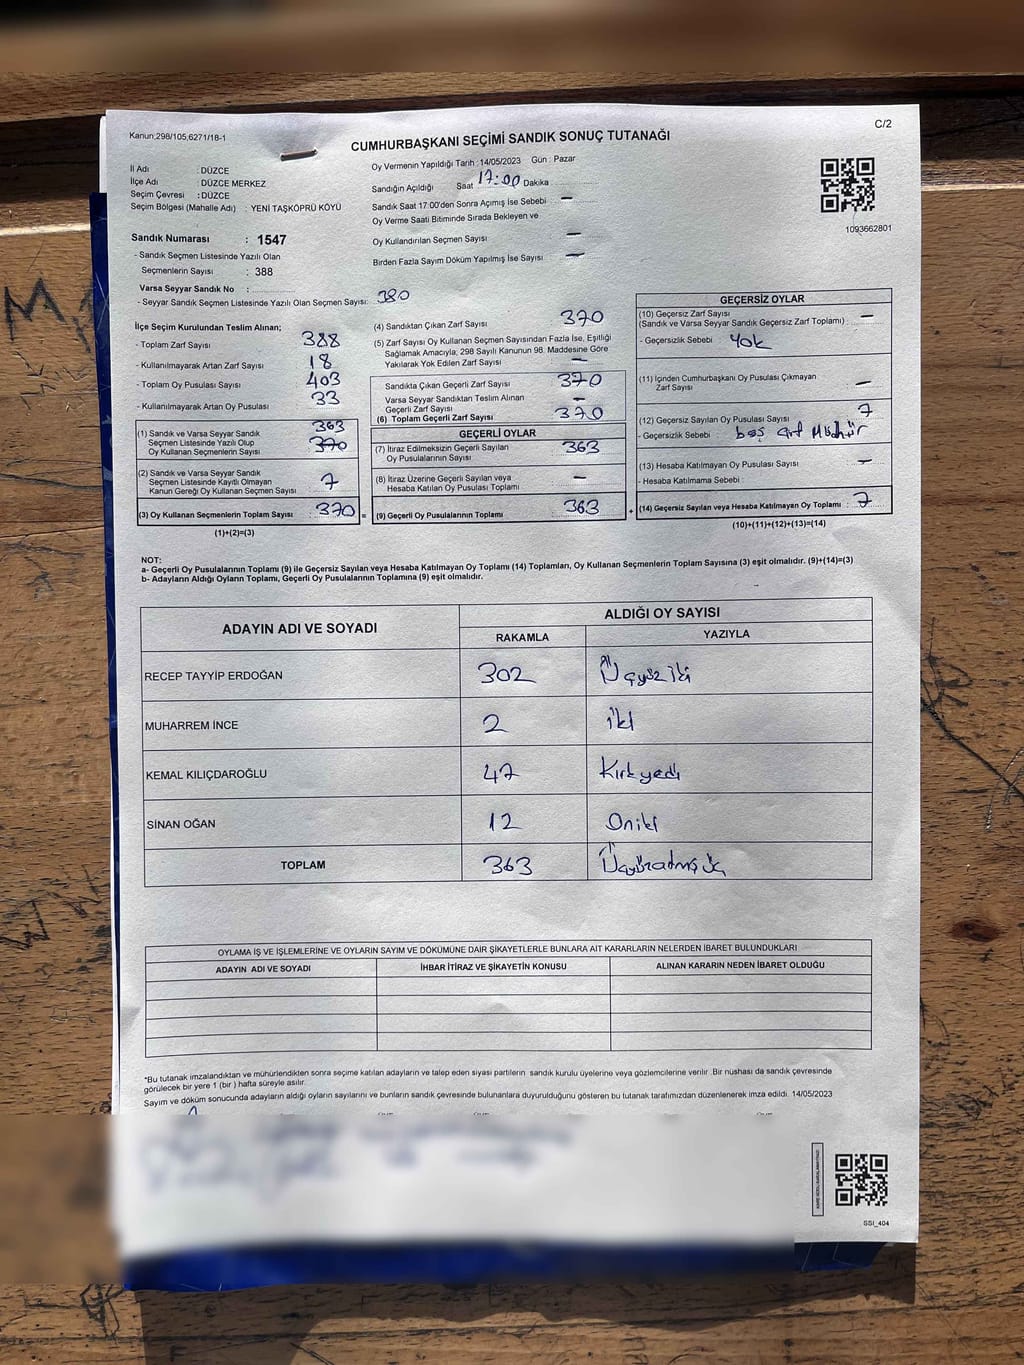 Kanun;298/105,6271/18-1
C/2
CUMHURBAŞKANI SEÇİMİ SANDIK SONUÇ TUTANAĞI
İl Adı : DÜZCE
İlçe Adı : DÜZCE MERKEZ
Seçim Çevresi : DÜZCE
Seçim Bölgesi (Mahalle Adı) : YENİ TAŞKÖPRÜ KÖYÜ
Sandık Numarası : 1547
- Sandık Seçmen Listesinde Yazılı Olan
Seçmenlerin Sayısı : 388
Varsa Seyyar Sandık No :
- Seyyar Sandık Seçmen Listesinde Yazılı Olan Seçmen Sayısı: 380
Oy Vermenin Yapıldığı Tarih : 14/05/2023 Gün : Pazar
Sandığın Açıldığı Saat 17:00 Dakika
Sandık Saat 17:00'den Sonra Açımış İse Sebebi —
Oy Verme Saati Bitiminde Sırada Bekleyen ve
Oy Kullandırılan Seçmen Sayısı —
Birden Fazla Sayım Döküm Yapılmış İse Sayısı —
1093662801
İlçe Seçim Kurulundan Teslim Alınan;
- Toplam Zarf Sayısı 388
- Kullanılmayarak Artan Zarf Sayısı 18
- Toplam Oy Pusulası Sayısı 403
- Kullanılmayarak Artan Oy Pusulası 33
(1) Sandık ve Varsa Seyyar Sandık
Seçmen Listesinde Yazılı Olup
Oy Kullanan Seçmenlerin Sayısı 363 370
(2) Sandık ve Varsa Seyyar Sandık
Seçmen Listesinde Kayıtlı Olmayan
Kanun Gereği Oy Kullanan Seçmen Sayısı 7
(3) Oy Kullanan Seçmenlerin Toplam Sayısı 370 =
(1)+(2)=(3)
(4) Sandıktan Çıkan Zarf Sayısı 370
(5) Zarf Sayısı Oy Kullanan Seçmen Sayısından Fazla İse, Eşitliği
Sağlamak Amacıyla; 298 Sayılı Kanunun 98. Maddesine Göre
Yakılarak Yok Edilen Zarf Sayısı —
Sandıkta Çıkan Geçerli Zarf Sayısı 370
Varsa Seyyar Sandıktan Teslim Alınan
Geçerli Zarf Sayısı —
(6) Toplam Geçerli Zarf Sayısı 370
GEÇERLİ OYLAR
(7) İtiraz Edilmeksizin Geçerli Sayılan
Oy Pusulalarının Sayısı 363
(8) İtiraz Üzerine Geçerli Sayılan veya
Hesaba Katılan Oy Pusulası Toplamı —
(9) Geçerli Oy Pusulalarının Toplamı 363 +
GEÇERSİZ OYLAR
(10) Geçersiz Zarf Sayısı
(Sandık ve Varsa Seyyar Sandık Geçersiz Zarf Toplamı) : —
- Geçersizlik Sebebi Yok
(11) İçinden Cumhurbaşkanı Oy Pusulası Çıkmayan
Zarf Sayısı —
(12) Geçersiz Sayılan Oy Pusulası Sayısı 7
- Geçersizlik Sebebi : boş çift Mühür
(13) Hesaba Katılmayan Oy Pusulası Sayısı —
- Hesaba Katılmama Sebebi :
(14) Geçersiz Sayılan veya Hesaba Katılmayan Oy Toplamı : 7
(10)+(11)+(12)+(13)=(14)
NOT:
a- Geçerli Oy Pusulalarının Toplamı (9) ile Geçersiz Sayılan veya Hesaba Katılmayan Oy Toplamı (14) Toplamları, Oy Kullanan Seçmenlerin Toplam Sayısına (3) eşit olmalıdır. (9)+(14)=(3)
b- Adayların Aldığı Oyların Toplamı, Geçerli Oy Pusulalarının Toplamına (9) eşit olmalıdır.
ADAYIN ADI VE SOYADI
ALDIĞI OY SAYISI
RAKAMLA YAZIYLA
RECEP TAYYİP ERDOĞAN 302 Üçyüziki
MUHARREM İNCE 2 iki
KEMAL KILIÇDAROĞLU 47 Kırkyedi
SİNAN OĞAN 12 Oniki
TOPLAM 363 Üçyüzatmışüç
OYLAMA İŞ VE İŞLEMLERİNE VE OYLARIN SAYIM VE DÖKÜMÜNE DAİR ŞİKAYETLERLE BUNLARA AİT KARARLARIN NELERDEN İBARET BULUNDUKLARI
ADAYIN ADI VE SOYADI İHBAR İTİRAZ VE ŞİKAYETİN KONUSU ALINAN KARARIN NEDEN İBARET OLDUĞU
*Bu tutanak imzalandıktan ve mühürlendikten sonra seçime katılan adayların ve talep eden siyasi partilerin sandık kurulu üyelerine veya gözlemcilerine verilir .Bir nüshası da sandık çevresinde
görülecek bir yere 1 (bir ) hafta süreyle asılır.
Sayım ve döküm sonucunda adayların aldığı oyların sayılarını ve bunların sandık çevresinde bulunanlara duyurulduğunu gösteren bu tutanak tarafımızdan düzenlenerek imza edildi. 14/05/2023
SSI_404